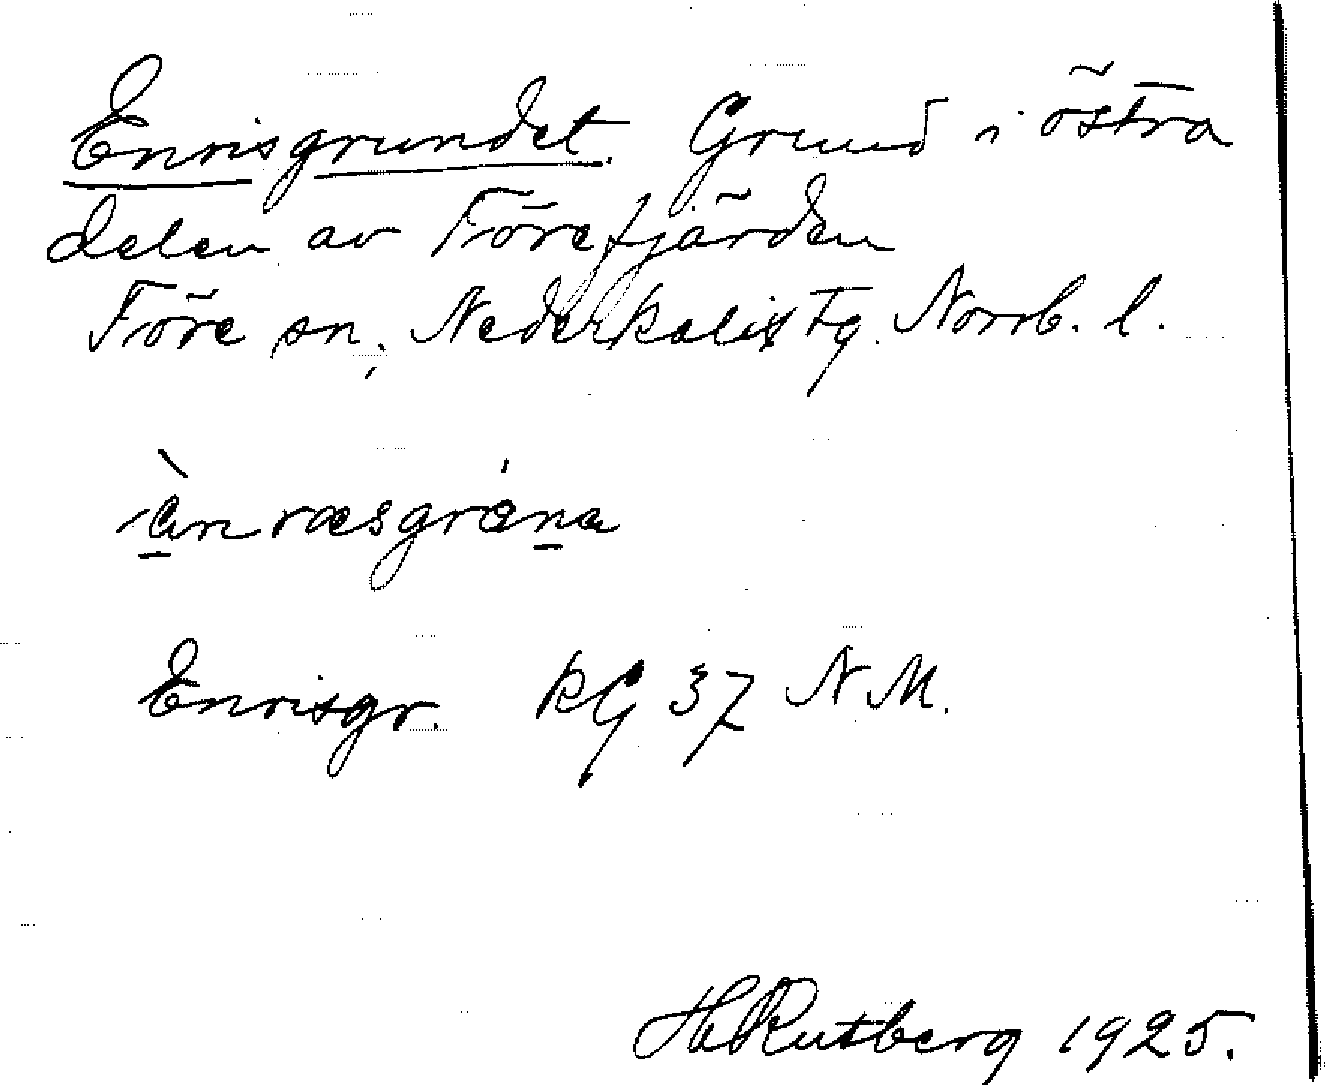 Enrisgrundet. Grund i östra
delen av Törefjärden
Töre sn, Nederkalix tg. Norrb. l.
Enrisgr. kG 37 N M.
H. Rutberg 1925.